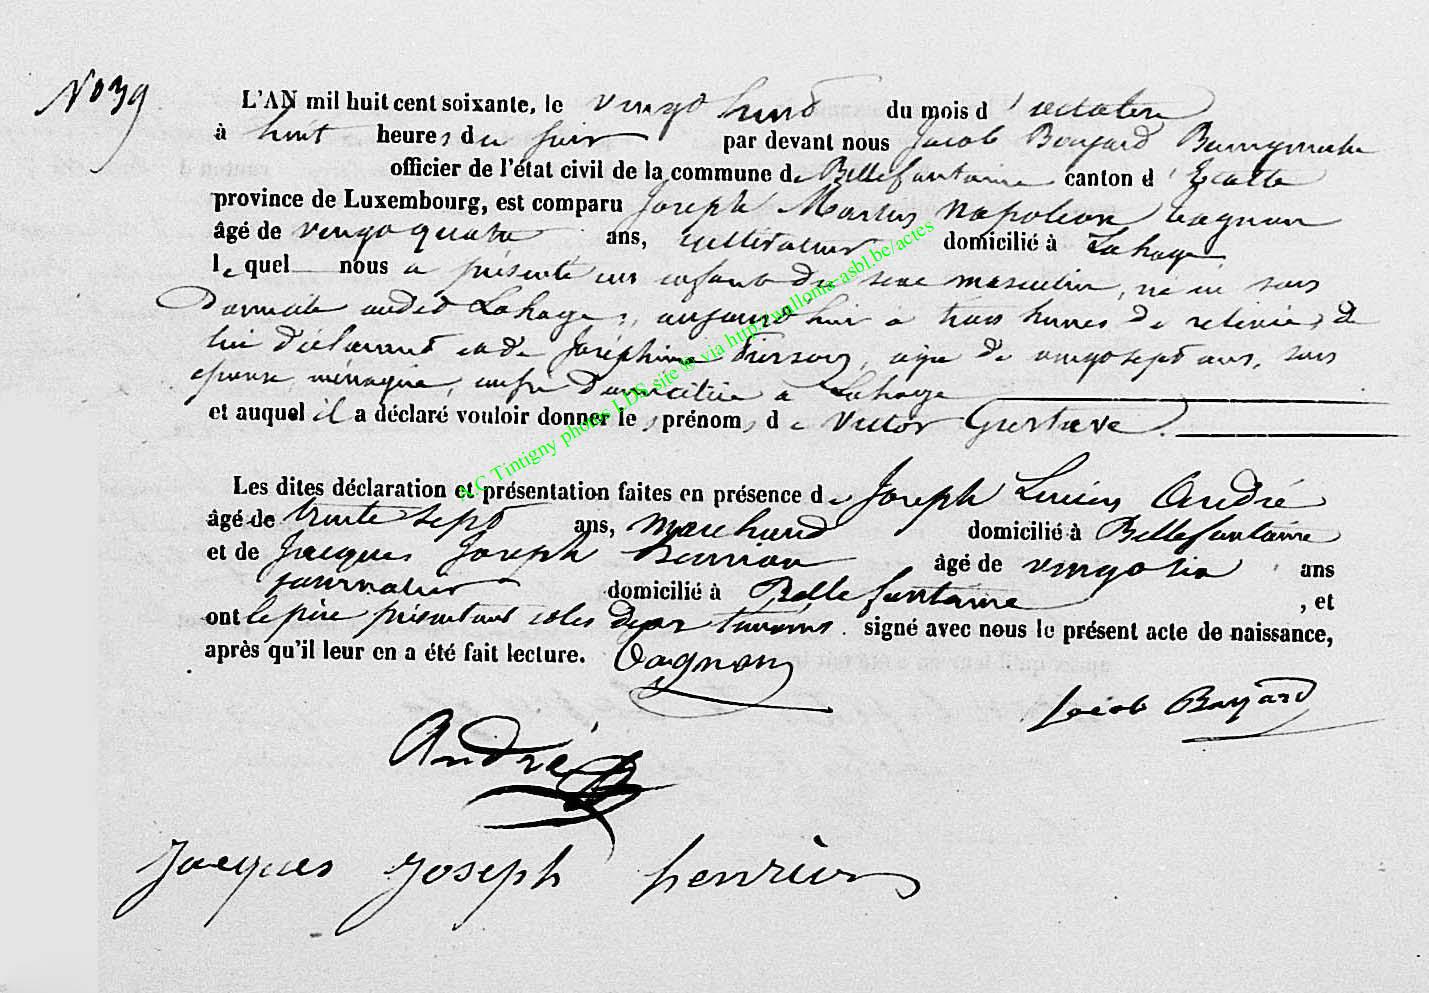 No 39
L'AN mil huit cent soixante, le vingt huit du mois d'octobre
à huit heures du soir par devant nous Jacob Bouyard Bourgmestre
officier de l'état civil de la commune de Bellefontaine canton d'Etalle
province de Luxembourg, est comparu Joseph Napoléon Gagnon
âgé de vingt quatre ans, cultivateur domicilié à Lahage
lequel nous a présenté un enfant du sexe masculin, né en son
domicile audit Lahage, aujourd'hui à trois heures de relevée, de
lui déclarant et de Joséphine agée de vingt sept ans, son
épouse, ménagère, domiciliée à Lahage
et auquel il a déclaré vouloir donner les prénoms de Victor Gustave.
Les dites déclaration et présentation faites en présence de Joseph Lucien André
âgé de trente sept ans, marchand domicilié à Bellefontaine
et de Jacques Joseph Henrion âgé de vingt six ans
journalier domicilié à Bellefontaine, et
ont le père présentant et les deux témoins signé avec nous le présent acte de naissance,
après qu'il leur en a été fait lecture. Gagnon
Jacob Bouyard
André
Jacques Joseph henrion
A.C Tintigny photos LDS site @ via http://wallonia-asbl.be/actes